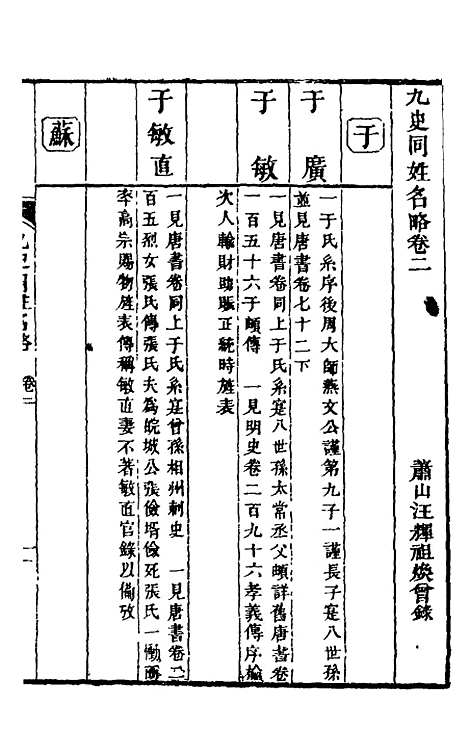 九史同姓名略卷二
蕭山汪輝祖煥曾錄
于
于廣
一于氏系序後周大師燕文公謹第九子一謹長子寔八世孫
並見唐書卷七十二下
于敏
一見唐書卷同上于氏系寔八世孫太常丞父頔詳舊唐書卷
一百五十六于頔傳　一見明史卷二百九十六孝義傳序輸
次人輸財助賑正統時旌表
于敏直
一見唐書卷同上于氏系寔曾孫相州刺史　一見唐書卷二
百五列女張氏傳張氏夫為皖城公張儉壻儉死張氏一慟而
卒高宗賜物旌表傳稱敏直妻不著敏直官錄以備攷
蘇
九史同姓名略
卷二
一